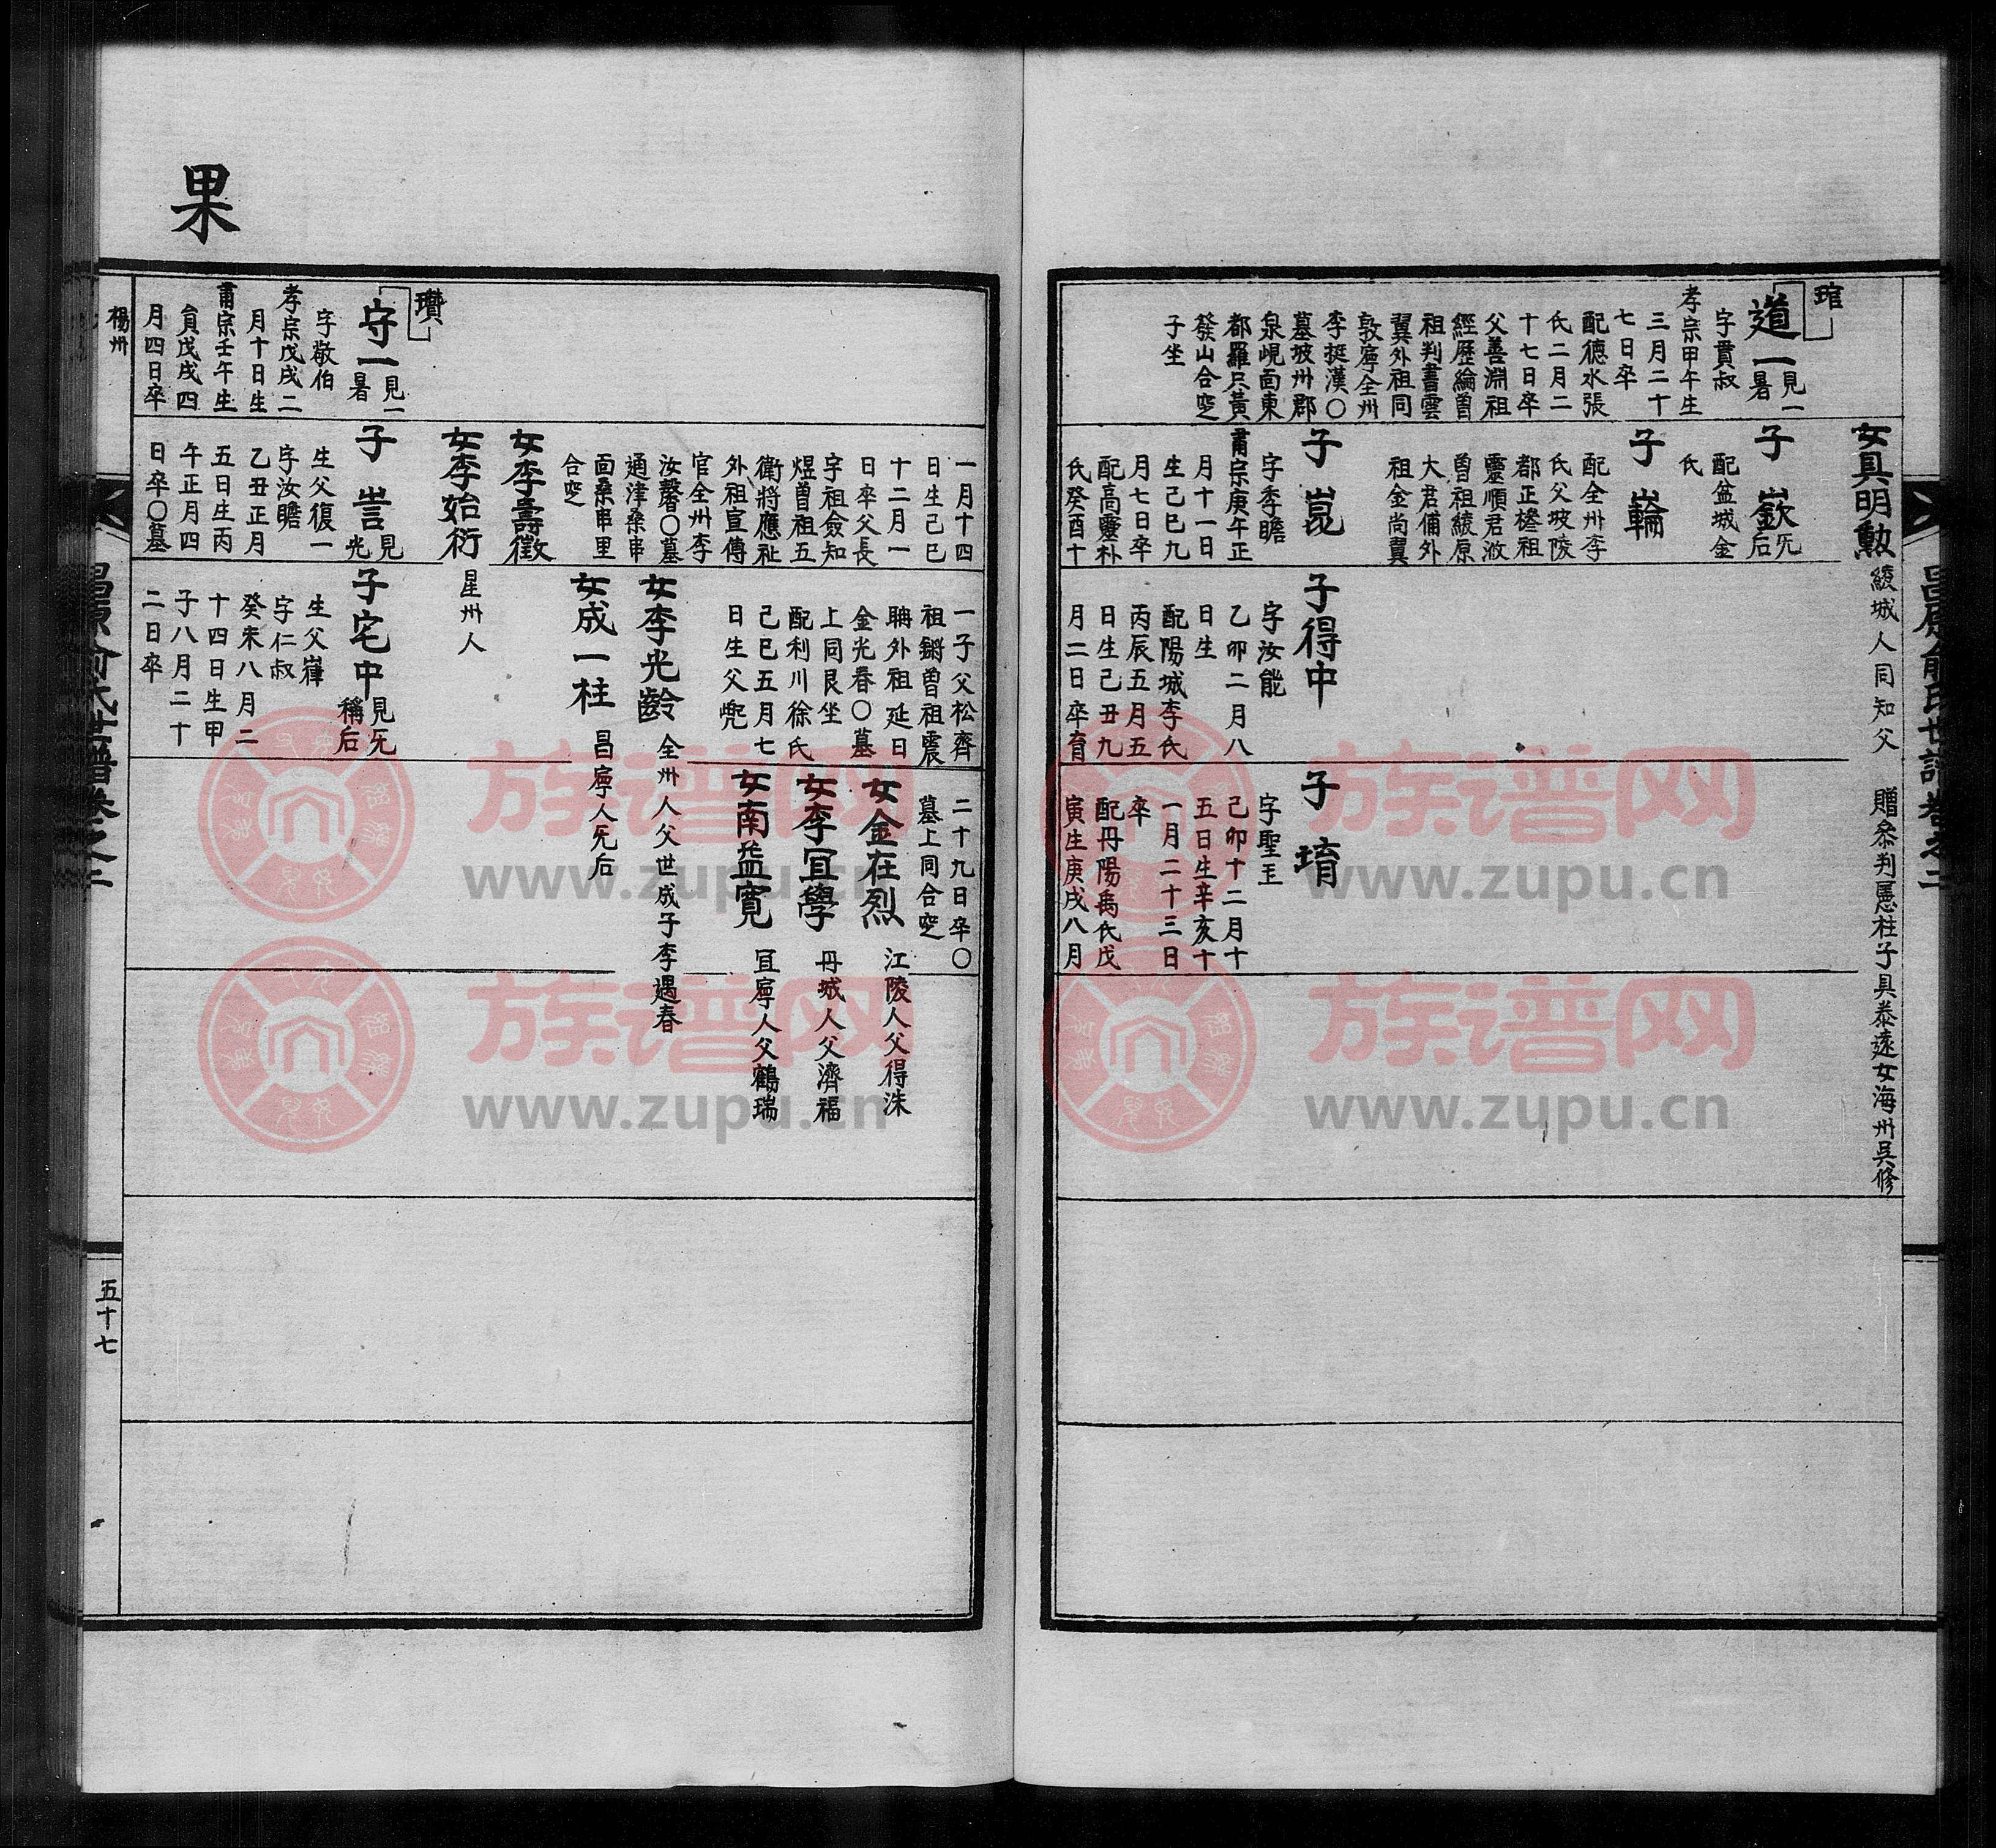 昌原俞氏世譜卷之二
女具明勲
綾城人同知父
贈叅判憲柱子具泰遠女海州吳修
琯
道一
見一
暑
字貫叔
孝宗甲午生
三月二十
七日卒
配德水張
氏二月二
十七日卒
父善淵祖
經歷綸曽
祖判書雲
翼外祖同
敦寧全州
李挺漢〇
墓坡州郡
泉峴面東
都羅只黃
發山合窆
子坐
子嶔
旡后
配盆城金
氏
子輪
配全州李
氏父坡陵
都正橏祖
靈順君潡
曽祖綾原
大君俌外
祖金尚翼
子崑
字季瞻
肅宗庚午正
月十一日
生己巳九
月七日卒
配高靈朴
氏癸酉十
子得中
字汝能
乙卯二月八
日生
配陽城李氏
丙辰五月五
日生己丑九
月二日卒育
子堉
字聖玉
己卯十二月十
五日生辛亥十
一月二十三日
卒
配丹陽禹氏戊
寅生庚戌八月
一月十四
日生己巳
十二月一
日卒父長
字祖僉知
煜曽祖五
衛將應祉
外祖宣傳
官全州李
汝馨〇墓
通津桑串
面桑串里
合窆
一子父松齊
祖鏘曽祖震
聃外祖延日
金光春〇墓
上同艮坐
配利川徐氏
己巳五月七
日生父㙯
二十九日卒〇
墓上同合窆
女金在烈
江陵人父得洙
女李冝學
丹城人父濟福
女南益寛
冝寧人父鶴瑞
女李光齡
全州人父世成子李遇春
女成一柱
昌寧人旡后
女李壽徵
女李始衍
星州人
瓚
守一
見一
暑
字敬伯
孝宗戊戌二
月十日生
肅宗壬午生
員戊戌四
月四日卒
子訔
見
光
生父復一
字汝瞻
乙丑正月
五日生丙
午正月四
日卒〇墓
子宅中
見旡
稱后
生父嶂
字仁叔
癸未八月二
十四日生甲
子八月二十
二日卒
楊州
果
昌原俞氏世譜卷之二
五十七
族谱网
www.zupu.cn
族谱网
www.zupu.cn
族谱网
www.zupu.cn
族谱网
www.zupu.cn